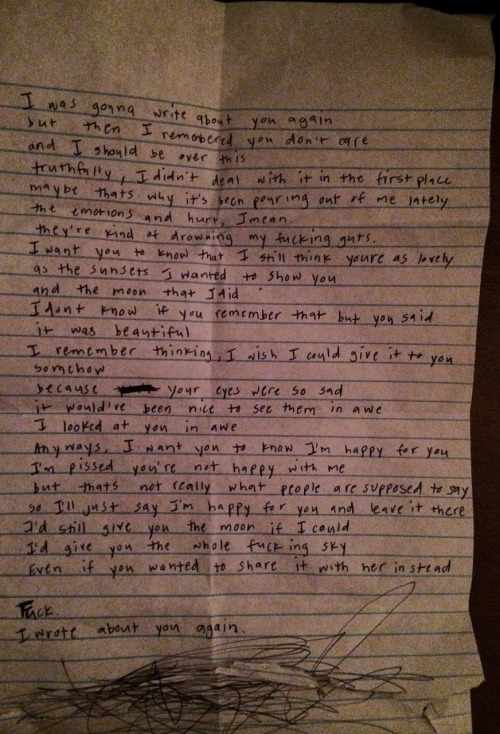 I was gonna write about you again
but then I remembered you don't care
and I should be over this
truthfully, I didn't deal with it in the first place
maybe thats why it's been pouring out of me lately
the emotions and hurt, I mean.
they're kind of drowning my fucking guts.
I want you to know that I still think youre as lovely
as the sunsets I wanted to show you
and the moon that I did
I dont know if you remember that but you said
it was beautiful
I remember thinking, I wish I could give it to you
somehow
because your eyes were so sad
it would've been nice to see them in awe
I looked at you in awe
Anyways, I want you to know I'm happy for you
I'm pissed you're not happy with me
but thats not really what people are supposed to say
so I'll just say I'm happy for you and leave it there
I'd still give you the moon if I could
I'd give you the whole fucking sky
Even if you wanted to share it with her instead
Fuck.
I wrote about you again.